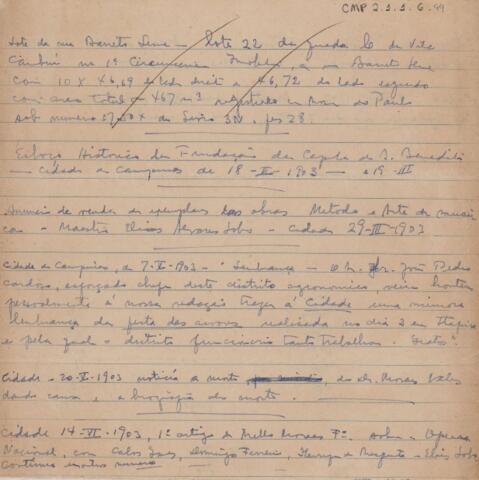 CMP 2.1.1.6.99
Lote da rua Barreto Leme — Lote 22 da quadra 6 da Vila
Cambuí na 1ª Circunscr Imobil, a rua Barreto Leme
com 10 x 46,69 do lado direito e 46,72 do lado esquerdo
com area total 467 m²
sob numero do Livro 3N. fls 28.
Esboço Historico da Fundação da Capela de S. Benedito
— Cidade de Campinas de 18-III-1903 — e 19-III
Anuncio de venda de exemplares das obras Metodo e Arte de musi
ca — Maestro Elias Alvares Lobo — Cidade 29-III-1903
Cidade de Campinas, de 7-V-1903 — "Lembrança — o Sr. Dr. João Pedro
Cardoso, esforçado chefe deste distrito agronomico, veiu hontem
pessoalmente á nossa redação trazer á Cidade uma mimosa
lembrança da festa das arvores realizada no dia 2 em Itapira
e pela qual o distrito funcionario tanto trabalhou. Gratos".
Cidade — 20-V-1903 noticía a morte do Dr. Moraes Salles
dando causa, e a biografia do morto.
Cidade 14-VI-1903, 1º artigo de Mello Moraes Fº. sobre Opera
Nacional, com Carlos Gomes, Domingo Ferreira, Henrique de Mesquita — Elias Lobo
Continua em outro numero